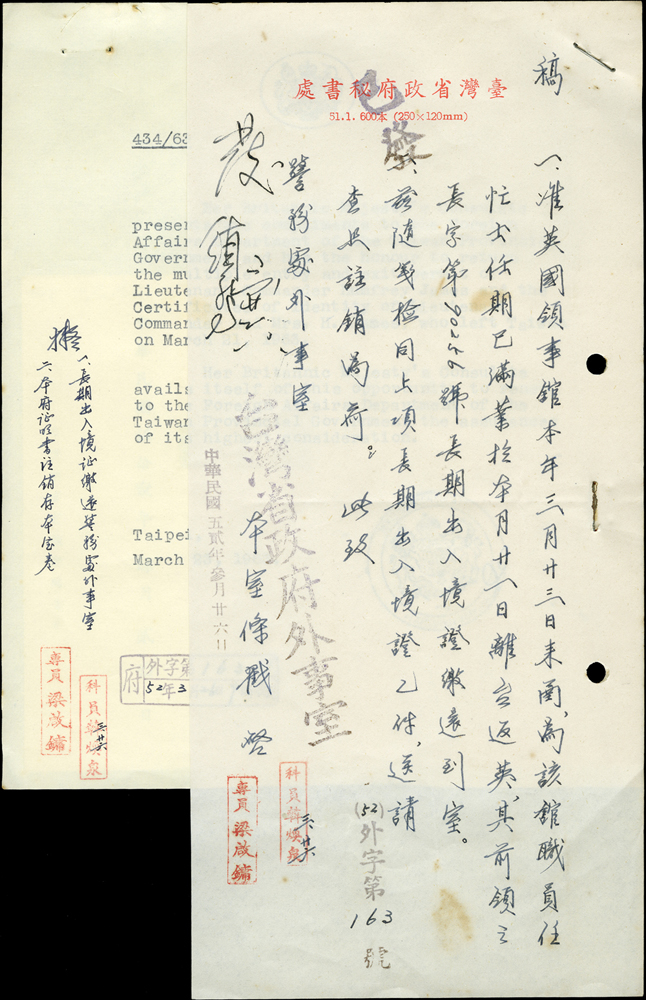 稿
臺灣省政府秘書處
51.1. 600本 (250×120mm)
已發
一、准英國領事館本年三月廿三日來函,為該館職員任
忙士任期已滿業於本月廿一日離台返英,其前領之
長字第
號長期出入境證繳還到室。
茲隨箋檢同上項長期出入境證乙件,送請
查照註銷為荷。 此致
警務處外事室
本室條戳 啓
發
台灣省政府外事室
中華民國五貳年參月廿六日
(52)外字第163號
科員
三、廿六
專員 梁啟鏞
434/63
presen
Affair
Govern
the mu
Lieute
Certif
Comman
on Mar
avails
to the
Taiwan
of its
Taipei
March
府
外字第
52年3
擬
一、長期出入境證繳還警務處外事室
二、本府證明書注銷存本室卷
科員
三、廿六
專員 梁啟鏞